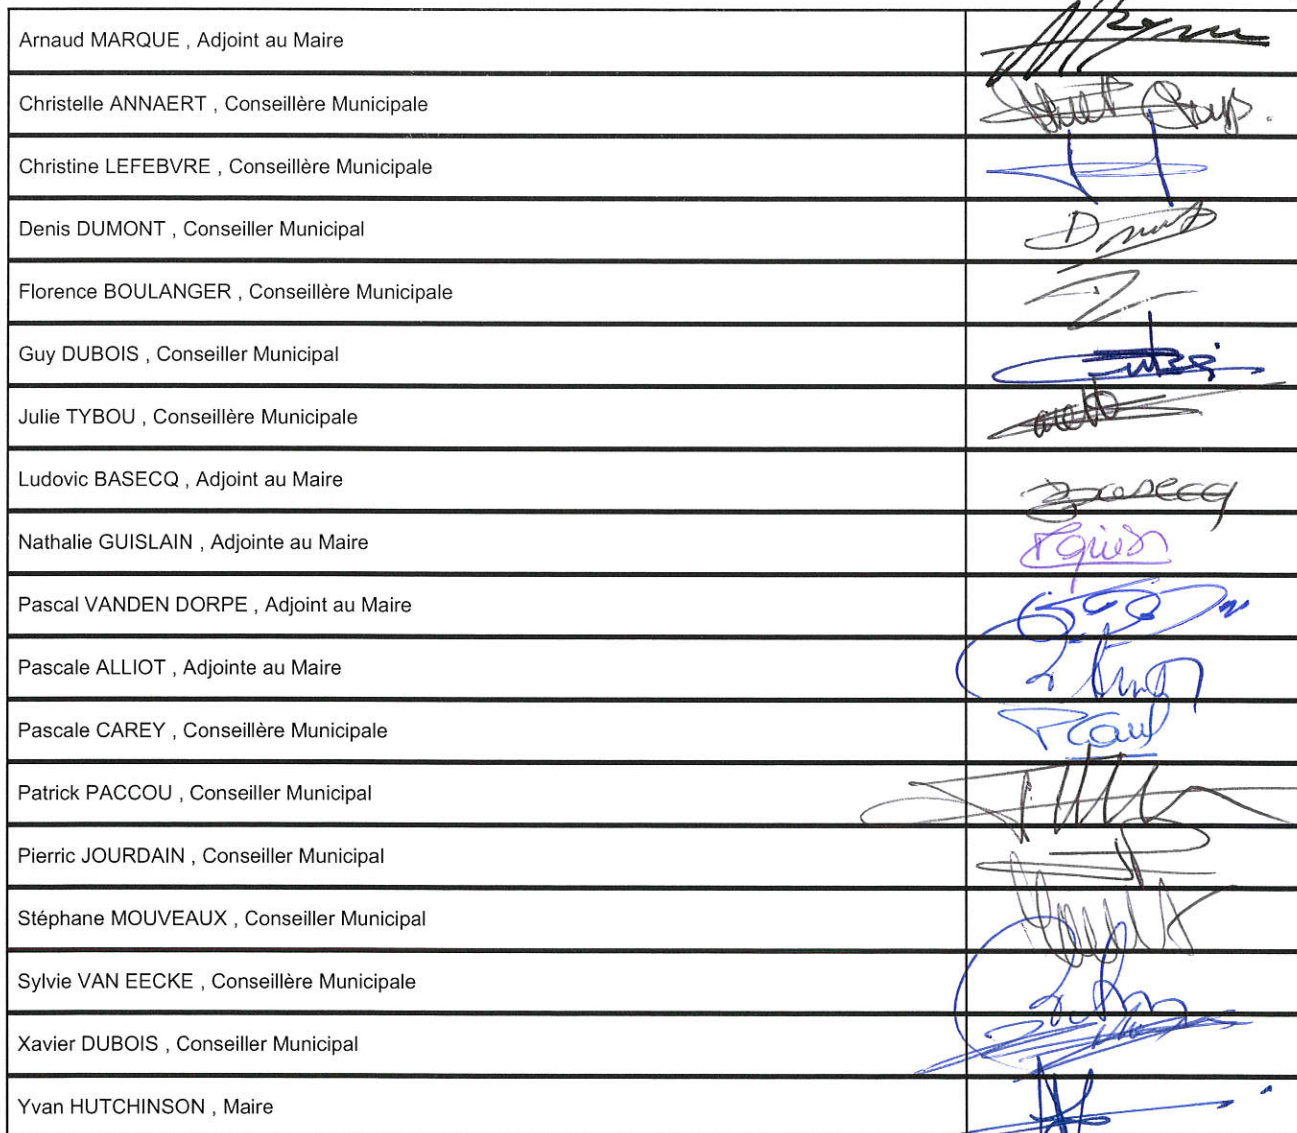 Arnaud MARQUE , Adjoint au Maire
Christelle ANNAERT , Conseillère Municipale
Christine LEFEBVRE , Conseillère Municipale
Denis DUMONT , Conseiller Municipal
Florence BOULANGER , Conseillère Municipale
Guy DUBOIS , Conseiller Municipal
Julie TYBOU , Conseillère Municipale
Ludovic BASECQ , Adjoint au Maire
Basecq
Nathalie GUISLAIN , Adjointe au Maire
Pascal VANDEN DORPE , Adjoint au Maire
Pascale ALLIOT , Adjointe au Maire
Pascale CAREY , Conseillère Municipale
Patrick PACCOU , Conseiller Municipal
Pierric JOURDAIN , Conseiller Municipal
Stéphane MOUVEAUX , Conseiller Municipal
Sylvie VAN EECKE , Conseillère Municipale
Xavier DUBOIS , Conseiller Municipal
Yvan HUTCHINSON , Maire